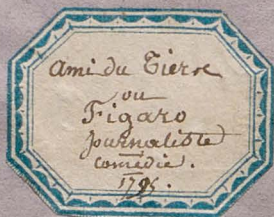 Ami du Tierse
ou
Figaro
journaliste
comédie.
1795.